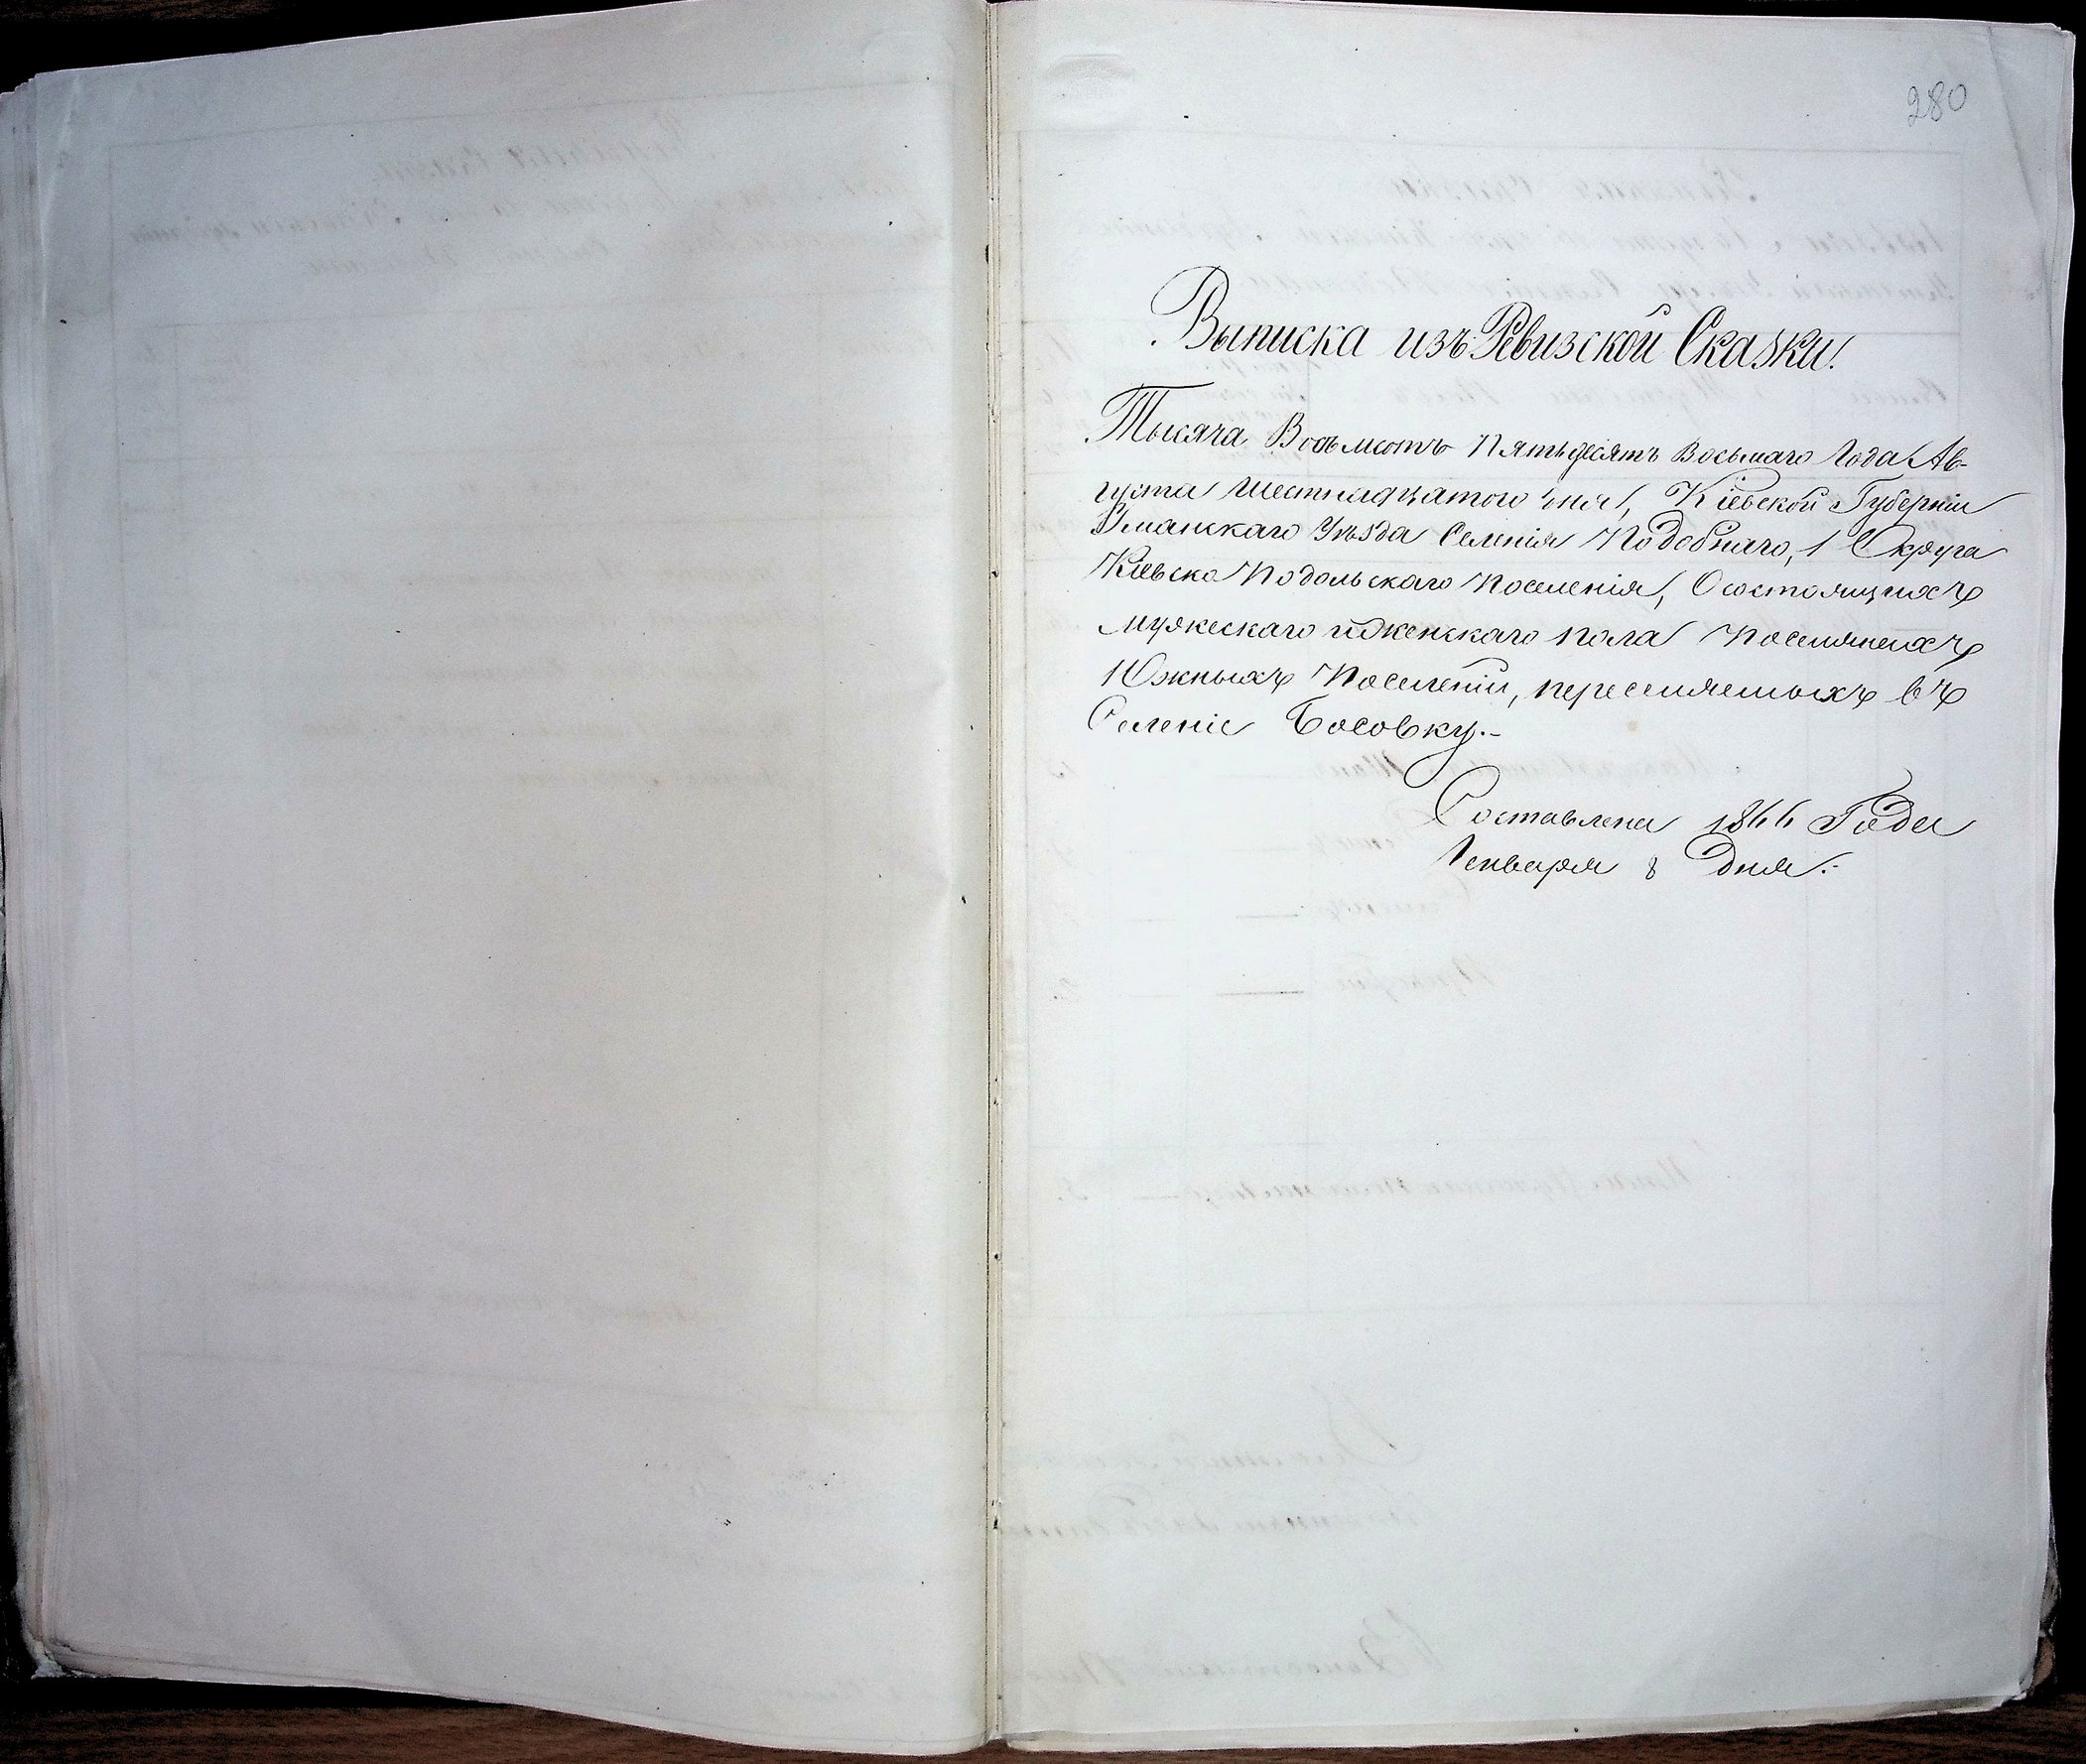 280
Выписка изъ Ревизской Сказки.
Тысяча Восьмсотъ Пятьдесятъ Восьмаго Года Ав-
густа шестнадцатого дня, Кіевской Губерніи
Уманскаго Уѣзда Селенія Подобнаго, 1 Округа
Кіевско Подольскаго Поселенія, О состоящихъ
мужескаго и женскаго пола Поселянехъ
Южныхъ Поселеній, переселяемыхъ въ
Селеніе Босовку.-
Составлена Года
Генваря 8 Дня.